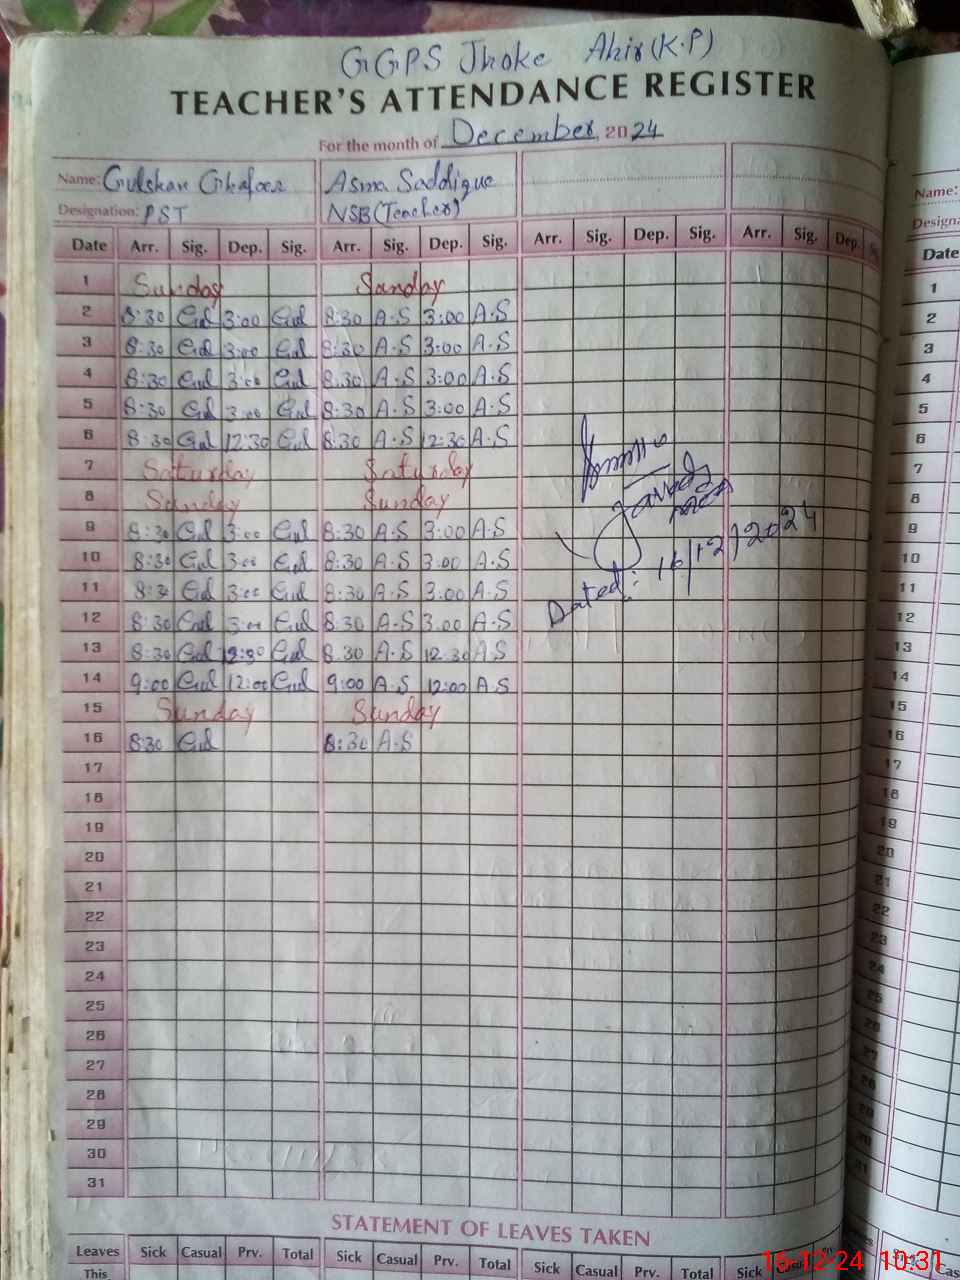 GGPS Jhoke Ahir (K.P)
TEACHER'S ATTENDANCE REGISTER
For the month of December, 2024
Name: Gulshan Ghafoor Asma Saddique
Designation: PST NSB (Teacher)
Date Arr. Sig. Dep. Sig. Arr. Sig. Dep. Sig. Arr. Sig. Dep. Sig. Arr. Sig. Dep.
1 Sunday Sunday
2 8:30 Gul 3:00 Gul 8:30 A.S 3:00 A.S
3 8:30 Gul 3:00 Gul 8:30 A.S 3:00 A.S
4 8:30 Gul 3:00 Gul 8:30 A.S 3:00 A.S
5 8:30 Gul 3:00 Gul 8:30 A.S 3:00 A.S
6 8:30 Gul 12:30 Gul 8:30 A.S 12:30 A.S
7 Saturday Saturday
8 Sunday Sunday
9 8:30 Gul 3:00 Gul 8:30 A.S 3:00 A.S
10 8:30 Gul 3:00 Gul 8:30 A.S 3:00 A.S
11 8:30 Gul 3:00 Gul 8:30 A.S 3:00 A.S
12 8:30 Gul 3:00 Gul 8:30 A.S 3:00 A.S
13 8:30 Gul 12:30 Gul 8:30 A.S 12:30 A.S
14 9:00 Gul 12:00 Gul 9:00 A.S 12:00 A.S
15 Sunday Sunday
16 8:30 Gul 8:30 A.S
17
18
19
20
21
22
23
24
25
26
27
28
29
30
31
Dated: 16/12/2024
STATEMENT OF LEAVES TAKEN
Leaves Sick Casual Prv. Total Sick Casual Prv. Total Sick Casual Prv. Total Sick
This
Name:
Designa
Date
1
2
3
4
5
6
7
8
9
10
11
12
13
14
15
16
17
18
19
20
21
22
23
24
25
16-12-24 10:31